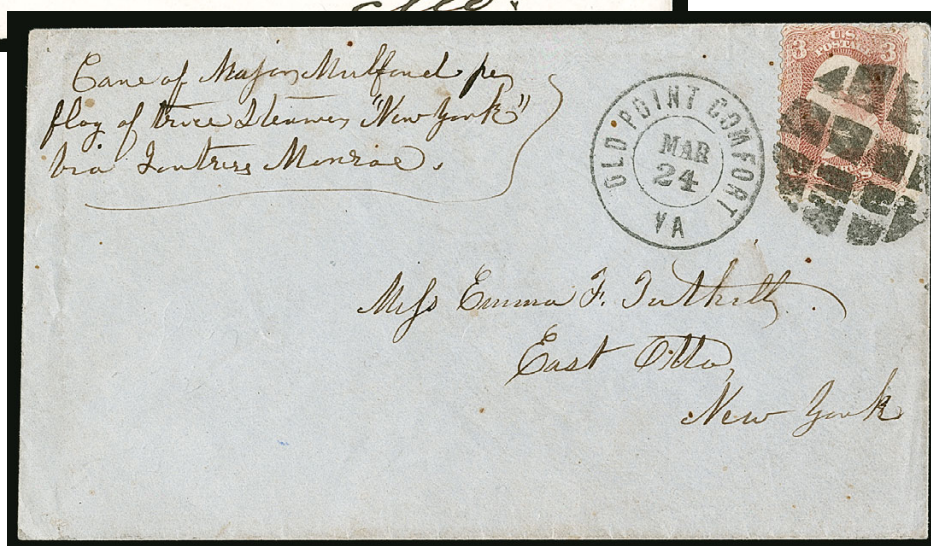 Care of Major Mulford per
flag of truce Steamer "New York"
via Fortress Monroe.
OLD POINT COMFORT
MAR
24
VA
3 U.S. 3
POSTAGE
Miss Emma F. Tuthill.
East Otto,
New York